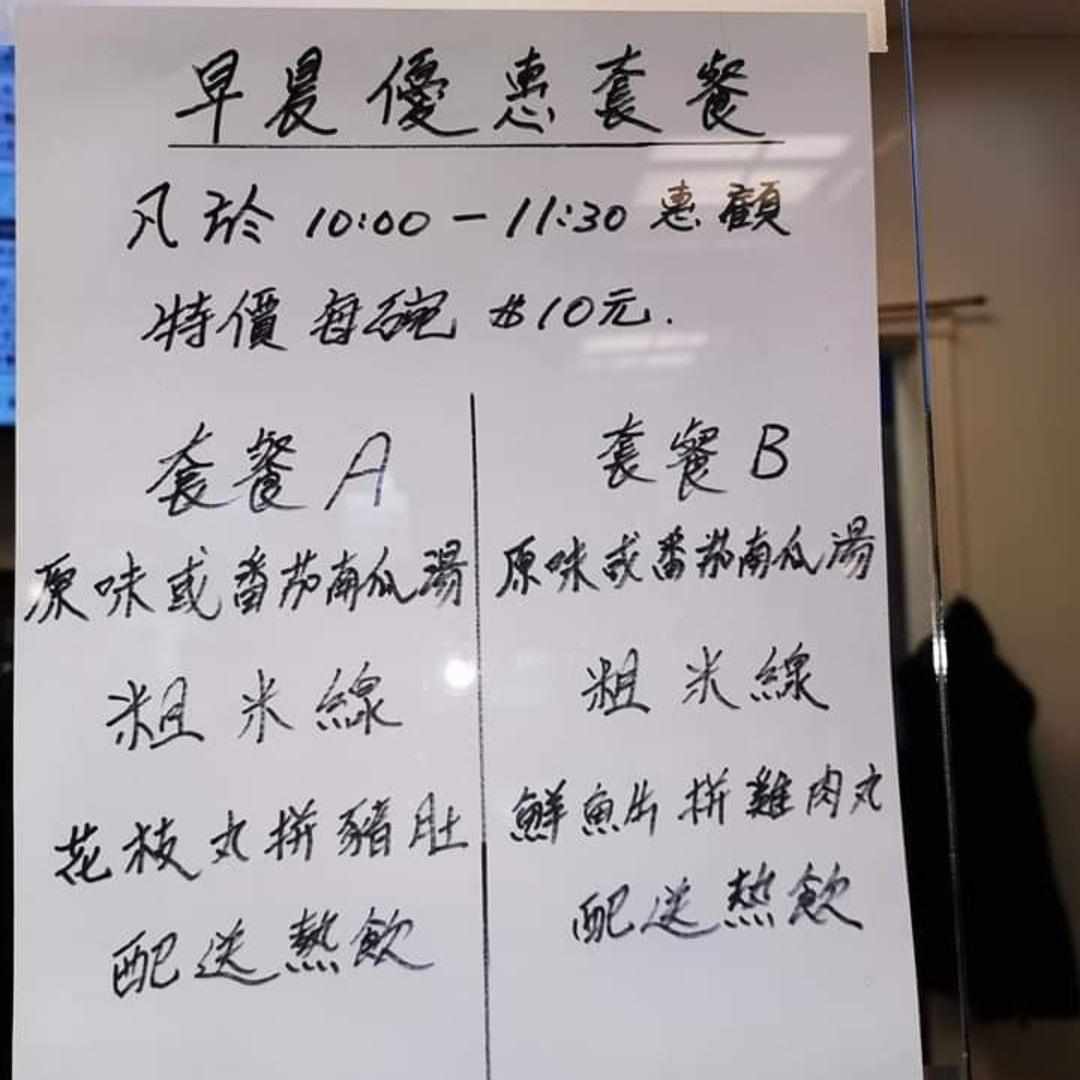 早晨優惠套餐
凡於 10:00 - 11:30 惠顧
特價每碗 $10元.
套餐 A
原味或番茄南瓜湯
粗米線
花枝丸拼豬肚
配送熱飲
套餐 B
原味或番茄南瓜湯
粗米線
鮮魚片拼雞肉丸
配送熱飲